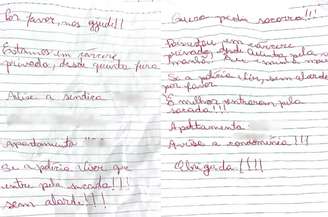 Por favor, nos ajude!!
Estamos em carcere
privado, desde quinta feira
Avise a sindica
Apartamento
Se a polícia vier que
entre pela sacada!!!
sem alarde!!!!
socorro!!!
em carcere
privado, desde quinta pela
Se a polícia vier, sem alarde
por favor
É melhor entrarem pela
sacada!!!
Apartamento
Avise a condomínio!!!
Obrigada!!!!